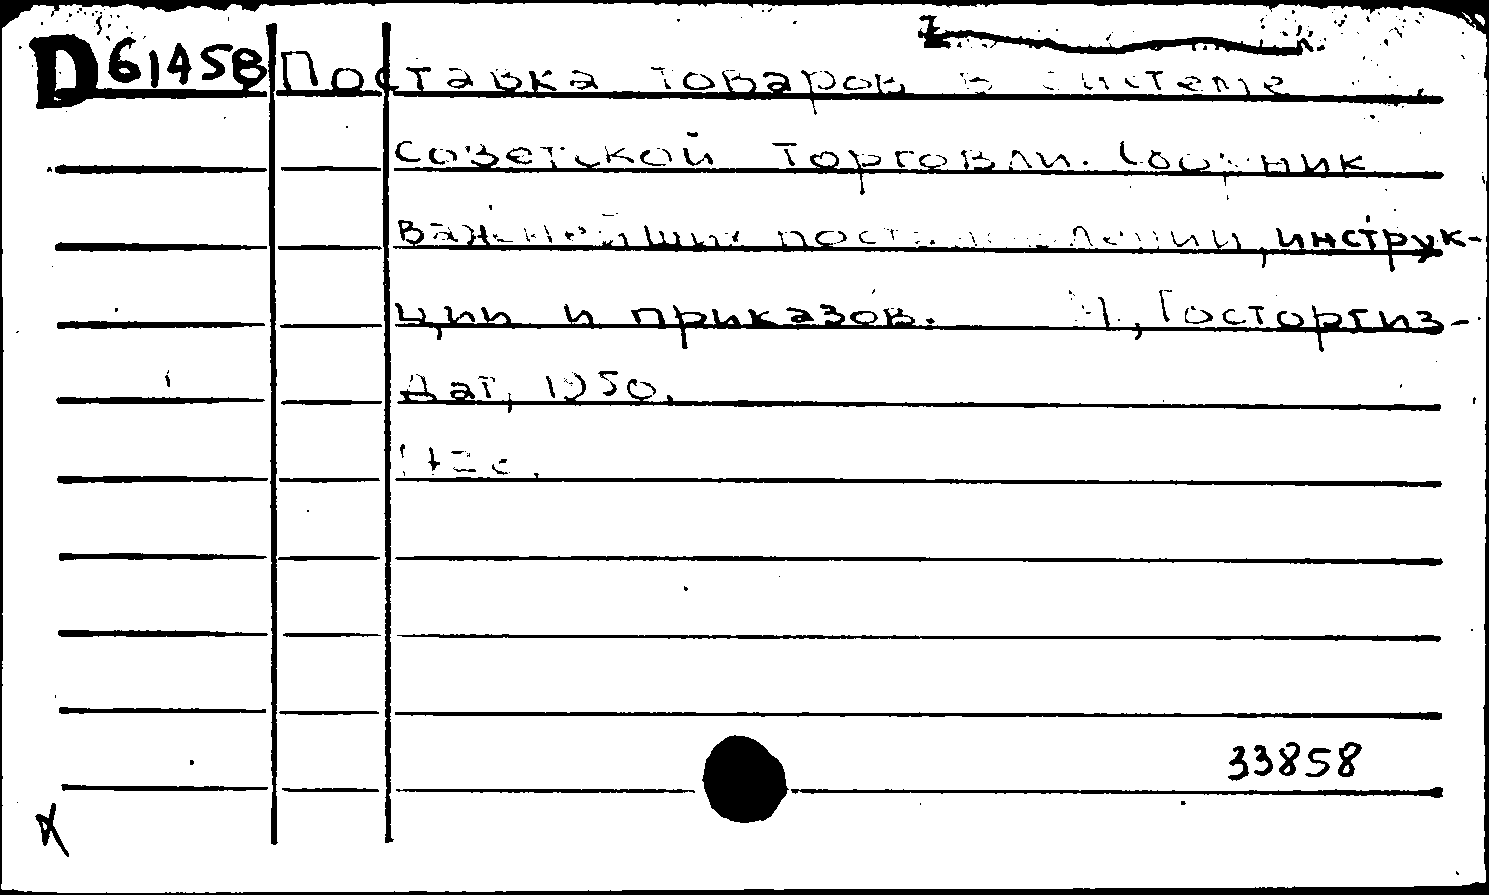 D 61458 Поставка товаров в системе
советской торговли. Сборник
важнейших постановлений, инструк-
ции и приказов. М, Госторгиз-
дат, 1950.
33858